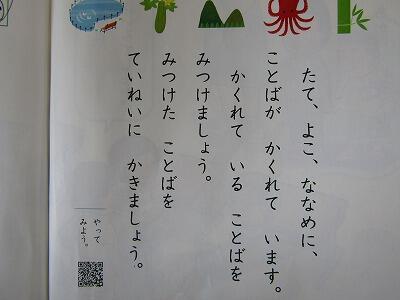 たて、よこ、ななめに、
ことばが　かくれて　います。
かくれて　いる　ことばを
みつけましょう。
みつけた　ことばを
ていねいに　かきましょう。
やって
みよう。